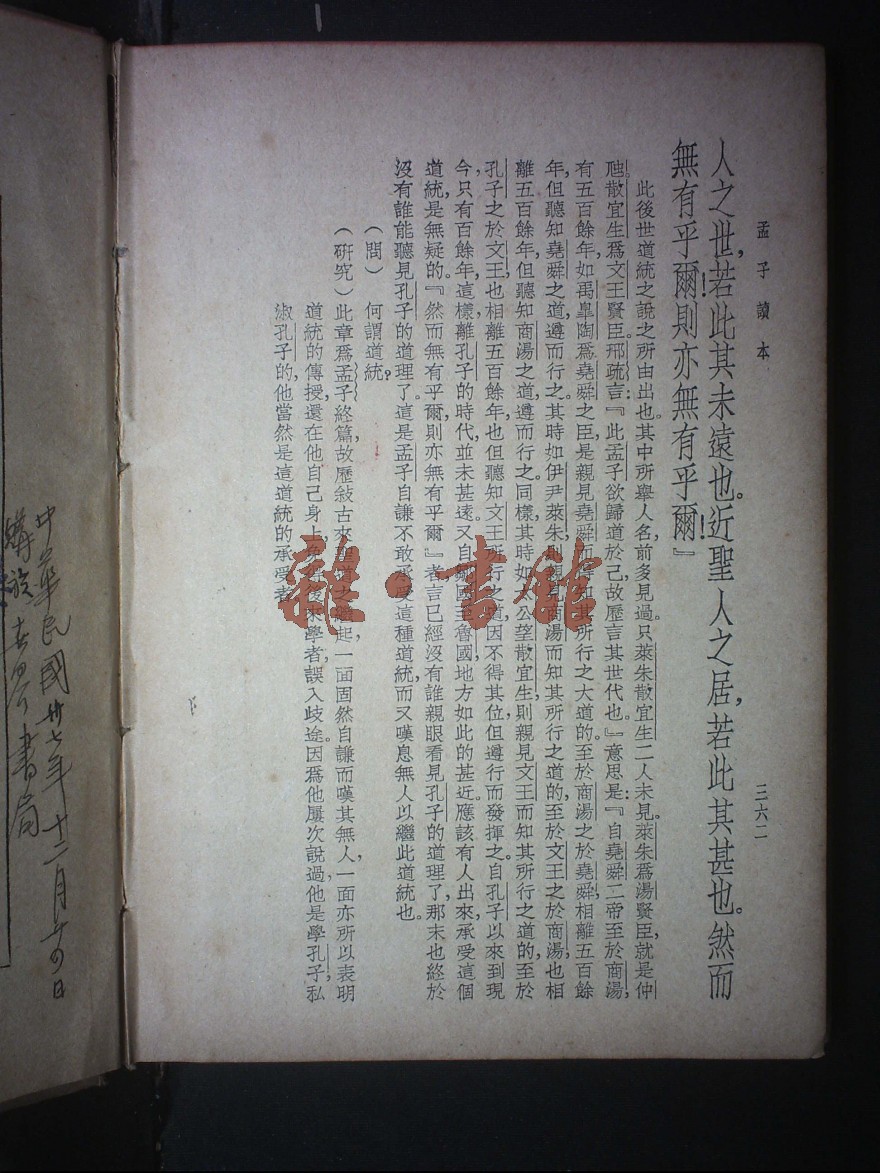 孟子讀本
三六二
人之世，若此其未遠也。近聖人之居，若此其甚也。然而
無有乎爾！則亦無有乎爾！』
此後世道統之說之所由出也。其中所舉人名，前多見過。只萊朱散宜生二人未見。萊朱為湯賢臣，就是仲
虺。散宜生爲文王賢臣。邢疏言：『此孟子欲歸道於己，故歷言其世代也。』意思是：『自堯舜二帝至於商湯，
有五百餘年，如禹臯陶爲堯舜之臣，是親見堯舜而知其所行之大道的。至於商湯之於堯舜，相離五百餘
年，但聽知堯舜之道，遵而行之。其時如伊尹萊朱，則親見商湯而知其所行之道的。至於文王之於商湯，也相
離五百餘年，但聽知商湯之道，遵而行之。同樣，其時如公望散宜生，則親見文王而知其所行之道的。至於
孔子之於文王，也相離五百餘年，也但聽知文王所行之道，因不得其位，但遵行而發揮之。自孔子以來到現
今，只有百餘年，這樣離孔子的時代，並未甚遠。又自鄒國至魯國地方如此的甚近。應該有人出來，承受這個
道統是無疑的。『然而無有乎爾，則亦無有乎爾』者，言已經沒有誰親眼看見孔子的道理了，那末也終於
沒有誰能聽見孔子的道理了。這是孟子自謙不敢承受這種道統，而又嘆息無人以繼此道統也。
（問） 何謂道統？
（研究）此章爲孟子終篇，故歷敍古來聖道之起，一面固然自謙而嘆其無人，一面亦所以表明
道統的傳授，還在他自己身上，免得後來學者，誤入歧途。因爲他屢次說過，他是學孔子，私
淑孔子的，他當然是這道統的承受者。
雜·書館
中華民國卅七年十二月十四日
購於 書局